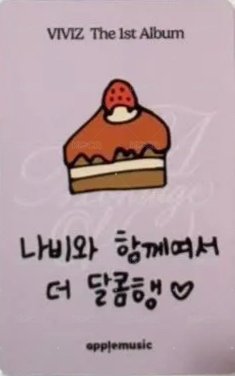 VIVIZ The 1st Album
나비와 함께여서
더 달콤행♡
applemusic